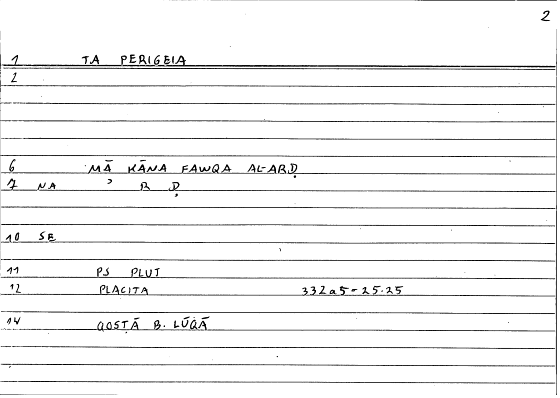 2
1 TA PERIGEIA
2
6 MĀ KĀNA FAWQA AL-ARḌ
7 NA ʾ R Ḍ
10 SE
11 PS PLUT
12 PLACITA 332a5-25.25
14 QOSṬĀ B. LŪQĀ